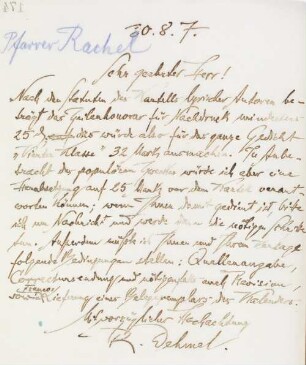 174
Pfarrer Rachel
20.8.7
Sehr geehrter Herr!
Nach den Statuten des Kartells lyrischer Autoren be-
trägt das Zeilenhonorar für Nachdruck mindestens
25 das würde aber für das ganze Gedicht
"Vierter Klasse" 32 Mark ausmachen. In Anbe-
tracht des populären Zwecks würde ich aber eine
auf 25 Mark vor dem Kartell verant-
worten können; wenn Ihnen damit gedient ist, bitte
ich um Nachricht und werde dann die nötigen Schritte
tun. Außerdem müßte ich Ihnen und Ihrem Verleger
folgende Bedingungen stellen: Quellenangabe,
Correctursendung und nötigenfalls auch Revision,
sowie Lieferung eines Belegexemplars des Kalenders.
Mit vorzüglicher Hochachtung
R. Dehmel.